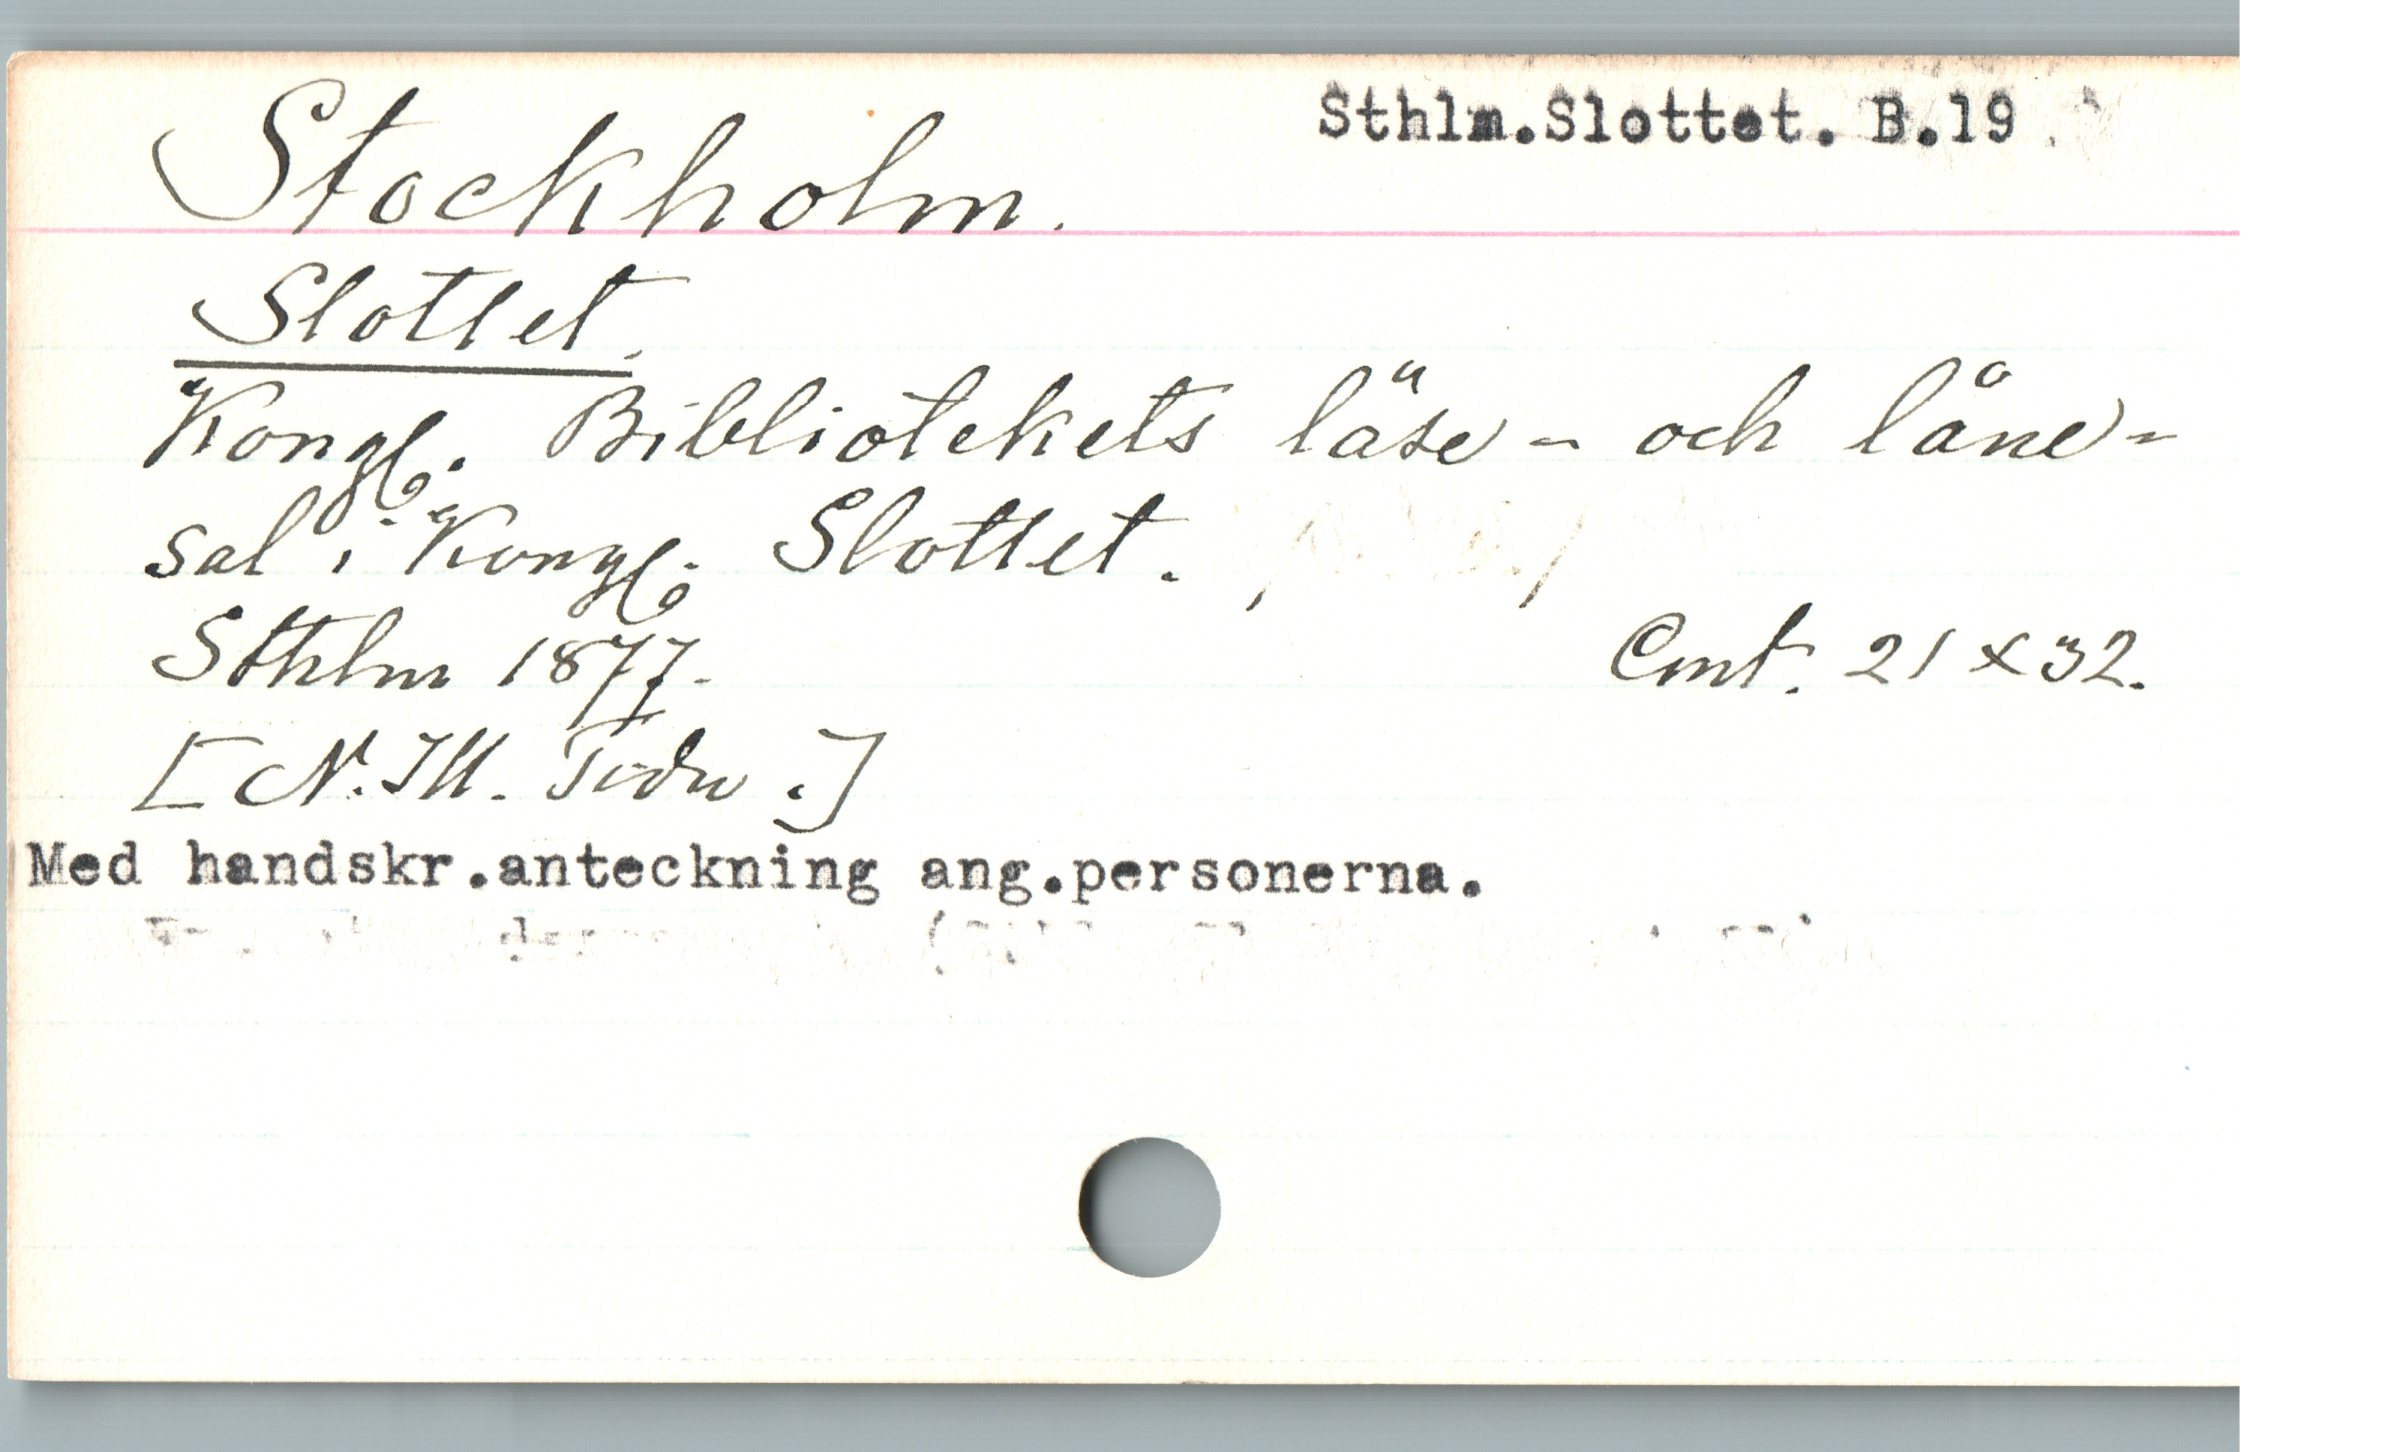 Sthlm.Slottet. B.19
Stockholm.
Slottet.
Kongl. Bibliotekets läse- och låne-
sal i Kongl. Slottet.
Sthlm 1877. Cmt. 21 x 32.
[N. M.]
Med handskr.anteckning ang.personerna.